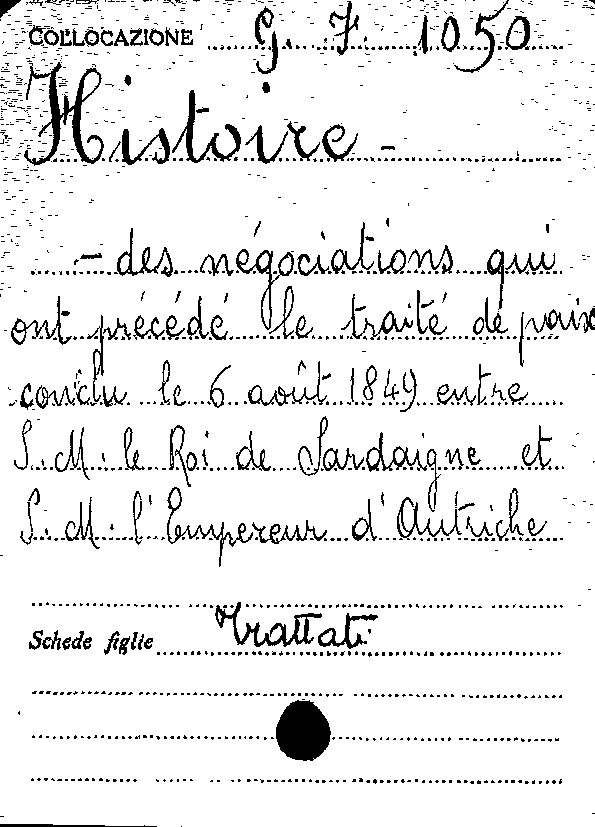 COLLOCAZIONE G. F. 1050
Histoire -
- des négociations qui
ont précédé le traité de paix
conclu le 6 août 1849 entre
S. M. le Roi de Sardaigne et
S. M. l'Empereur d'Autriche
Schede figlie Trattati